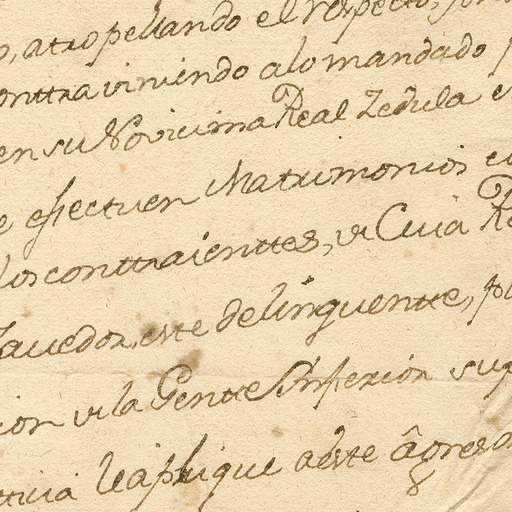 o, atropellando el respecto, por
onttraviniendo alo mandado p
en su Novicima Real Zedula e
e efectuen Matrimonios en
los conttraienttes, vi Cuia Re
avedor, este delinquentte, po
ion vi la Gentte Ynferior sup
tticia leaplique aeste âgresor